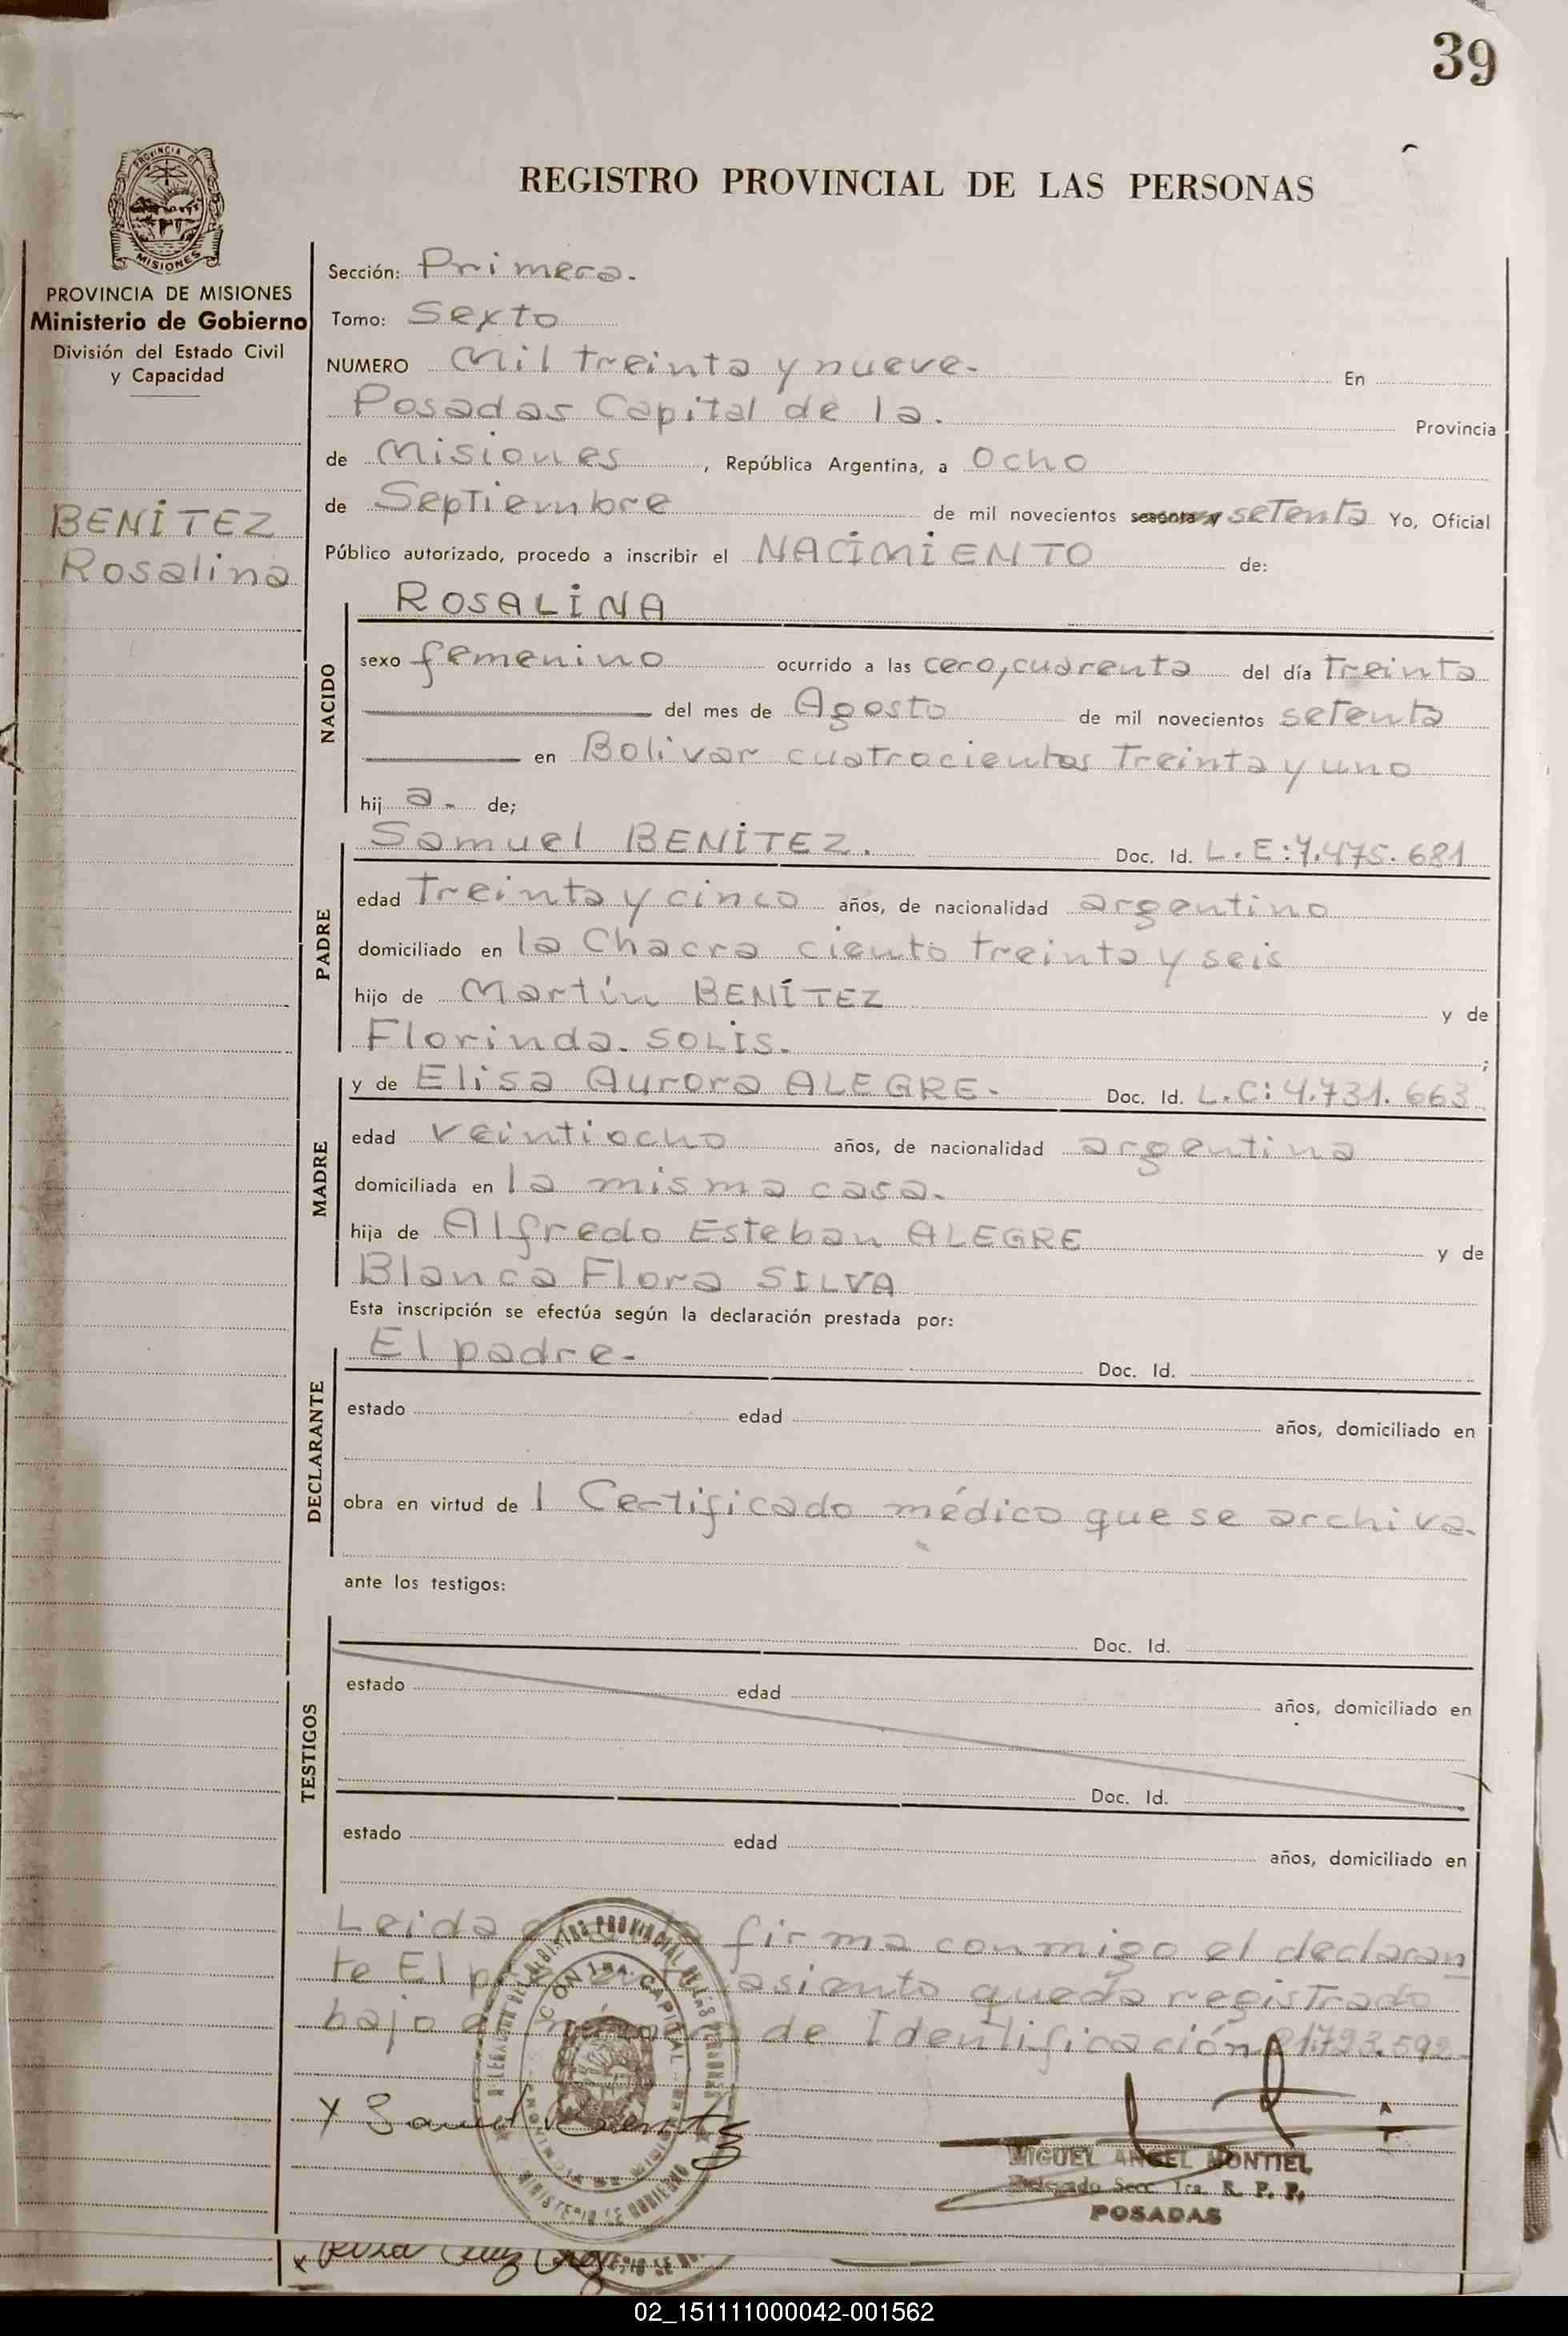 39
REGISTRO PROVINCIAL DE LAS PERSONAS
PROVINCIA DE
MISIONES
PROVINCIA DE MISIONES
Ministerio de Gobierno
División del Estado Civil
y Capacidad
BENÍTEZ
Rosalina
Sección: Primera.
Tomo: Sexto
NUMERO Mil treinta y nueve. En
Posadas Capital de la. Provincia
de Misiones, República Argentina, a Ocho
de Septiembre de mil novecientos sesenta y setenta Yo, Oficial
Público autorizado, procedo a inscribir el NACIMIENTO de:
NACIDO
ROSALINA
sexo femenino ocurrido a las cero, cuarenta del día treinta
del mes de Agosto de mil novecientos setenta
en Bolivar cuatrocientos treinta y uno
hij a. de;
PADRE
Samuel BENÍTEZ. Doc. Id. L.E: 7.475.681
edad treinta y cinco años, de nacionalidad argentino
domiciliado en la Chacra ciento treinta y seis
hijo de Martín BENÍTEZ y de
Florinda. SOLIS. ;
MADRE
y de Elisa Aurora ALEGRE. Doc. Id. L.C: 4.731.663
edad veintiocho años, de nacionalidad argentina
domiciliada en la misma casa.
hija de Alfredo Esteban ALEGRE y de
Blanca Flora SILVA
Esta inscripción se efectúa según la declaración prestada por:
DECLARANTE
El padre. Doc. Id.
estado edad años, domiciliado en
obra en virtud de 1 Certificado médico que se archiva.
ante los testigos:
TESTIGOS
Doc. Id.
estado edad años, domiciliado en
Doc. Id.
estado edad años, domiciliado en
Leida firma conmigo el declaran
te El presente asiento queda registrado
bajo número de Identificación 21.793.592
X Samuel Benitez
MIGUEL ANGEL MONTIEL
Delegado Secc. 1ra. R. P. P.
POSADAS
MINISTERIO DE GOBIERNO
02_151111000042-001562